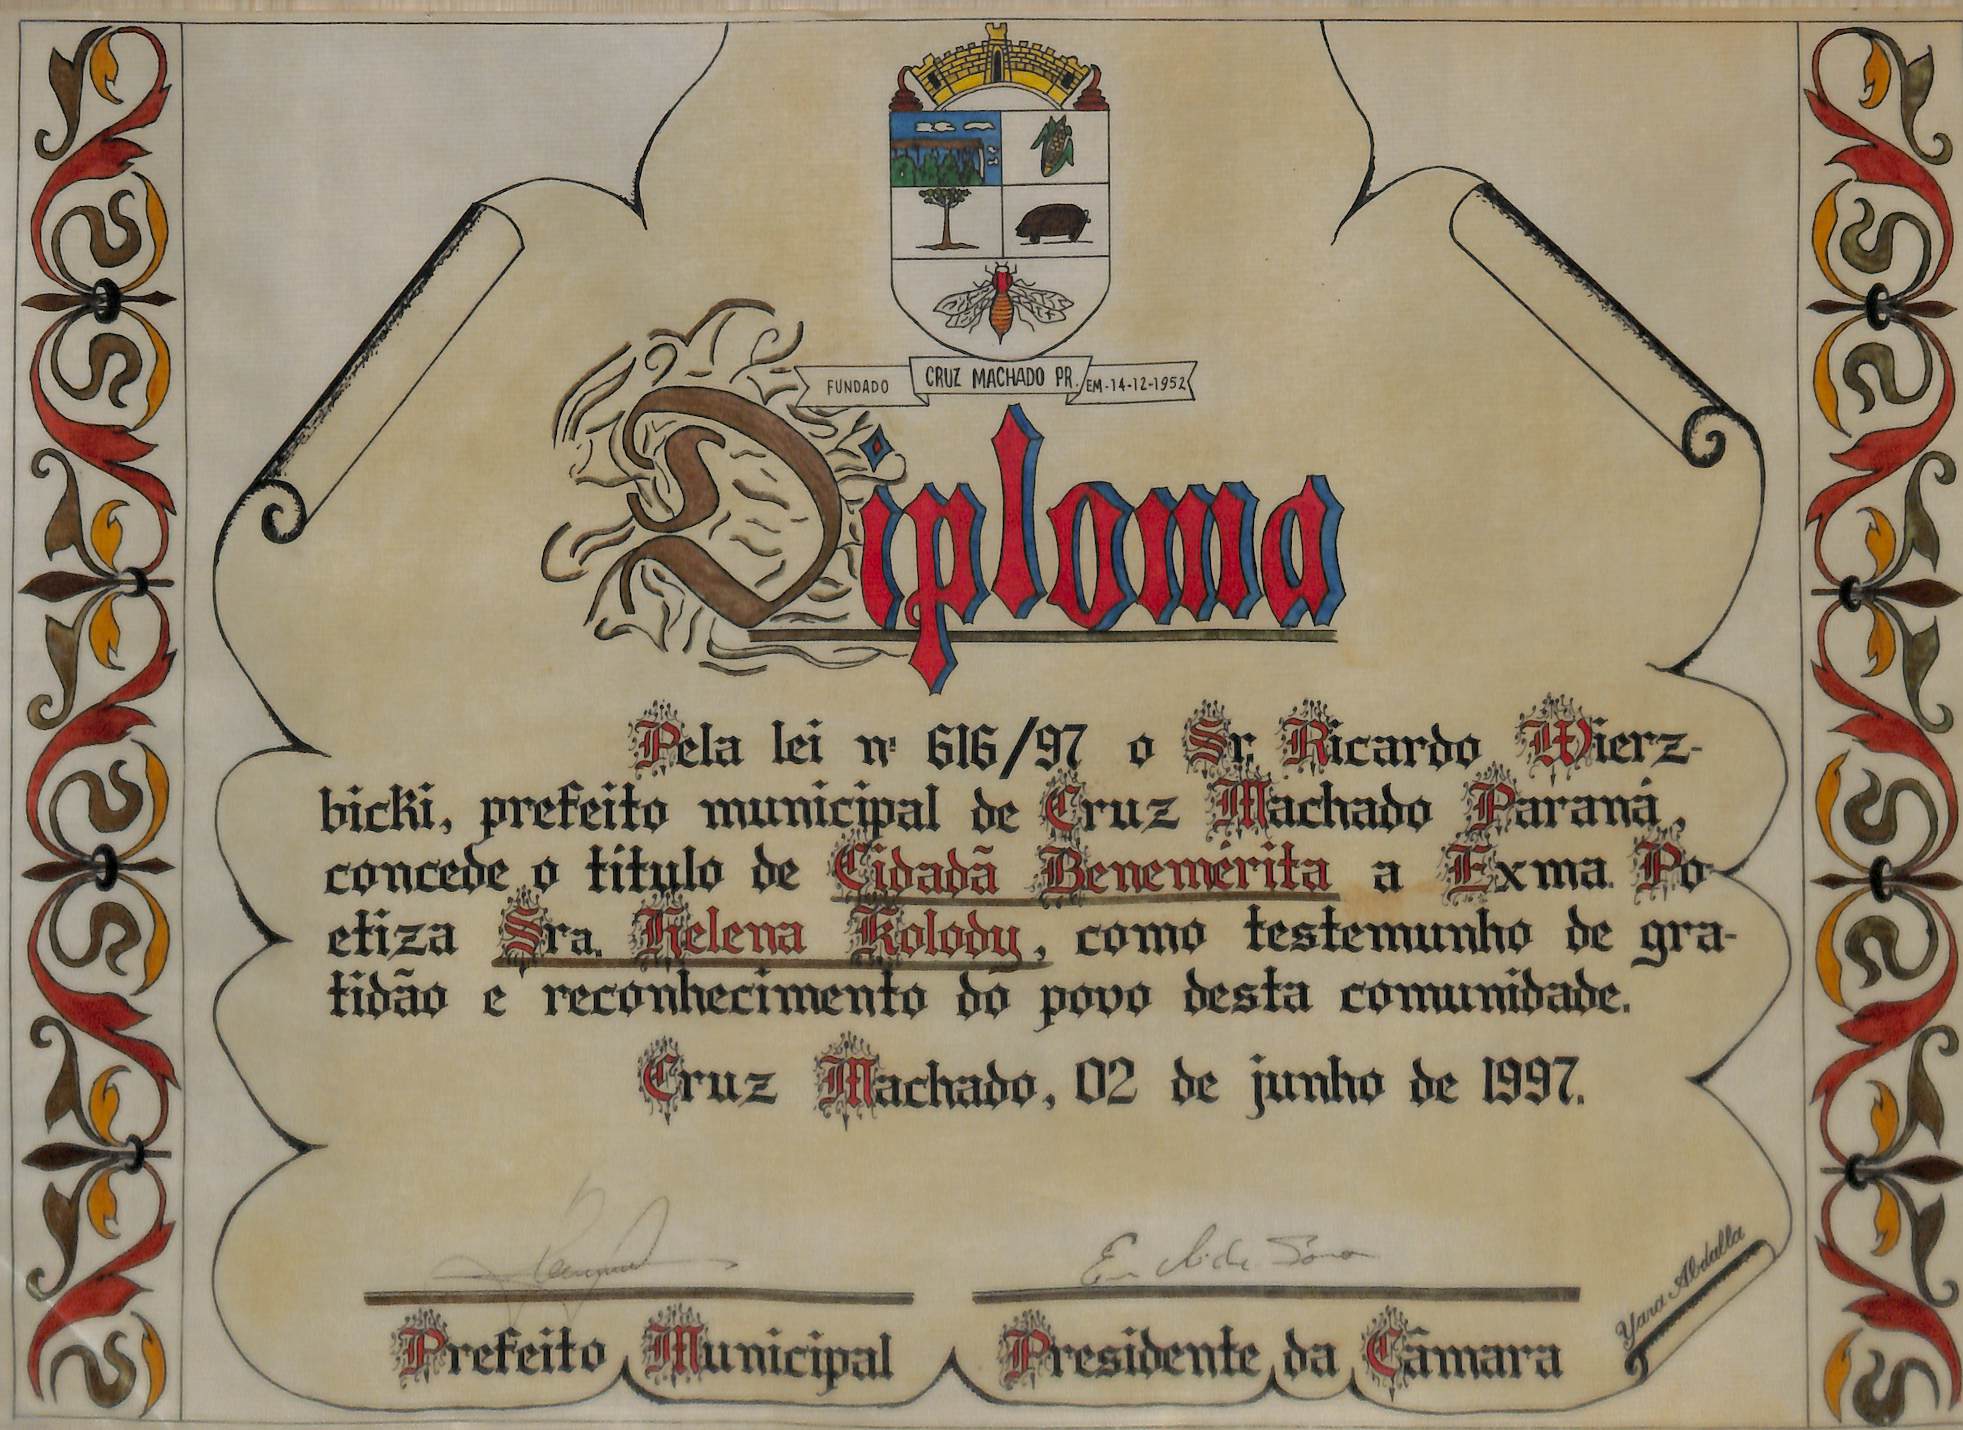 FUNDADO CRUZ MACHADO PR. EM-14-12-1952
Diploma
Pela lei nº 616/97 o Sr. Ricardo Wierz-
bicki, prefeito municipal de Cruz Machado Paraná,
concede o título de Cidadã Benemérita a Exma. Po-
etiza Sra. Helena Kolody, como testemunho de gra-
tidão e reconhecimento do povo desta comunidade.
Cruz Machado, 02 de junho de 1997.
Yara Abdalla
Prefeito Municipal Presidente da Câmara